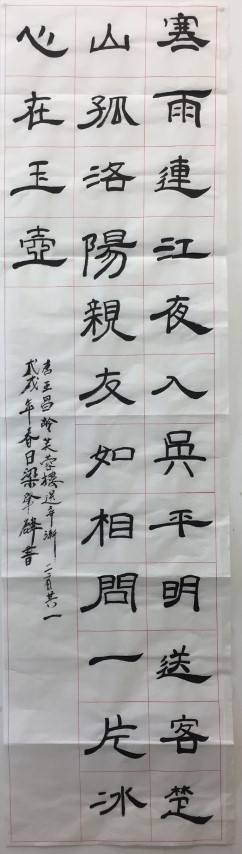 寒雨連江夜入吳平明送客楚
山孤洛陽親友如相問一片冰
心在玉壺
書王昌齡芙蓉樓送辛漸二首其一
戊戌年春日梁書